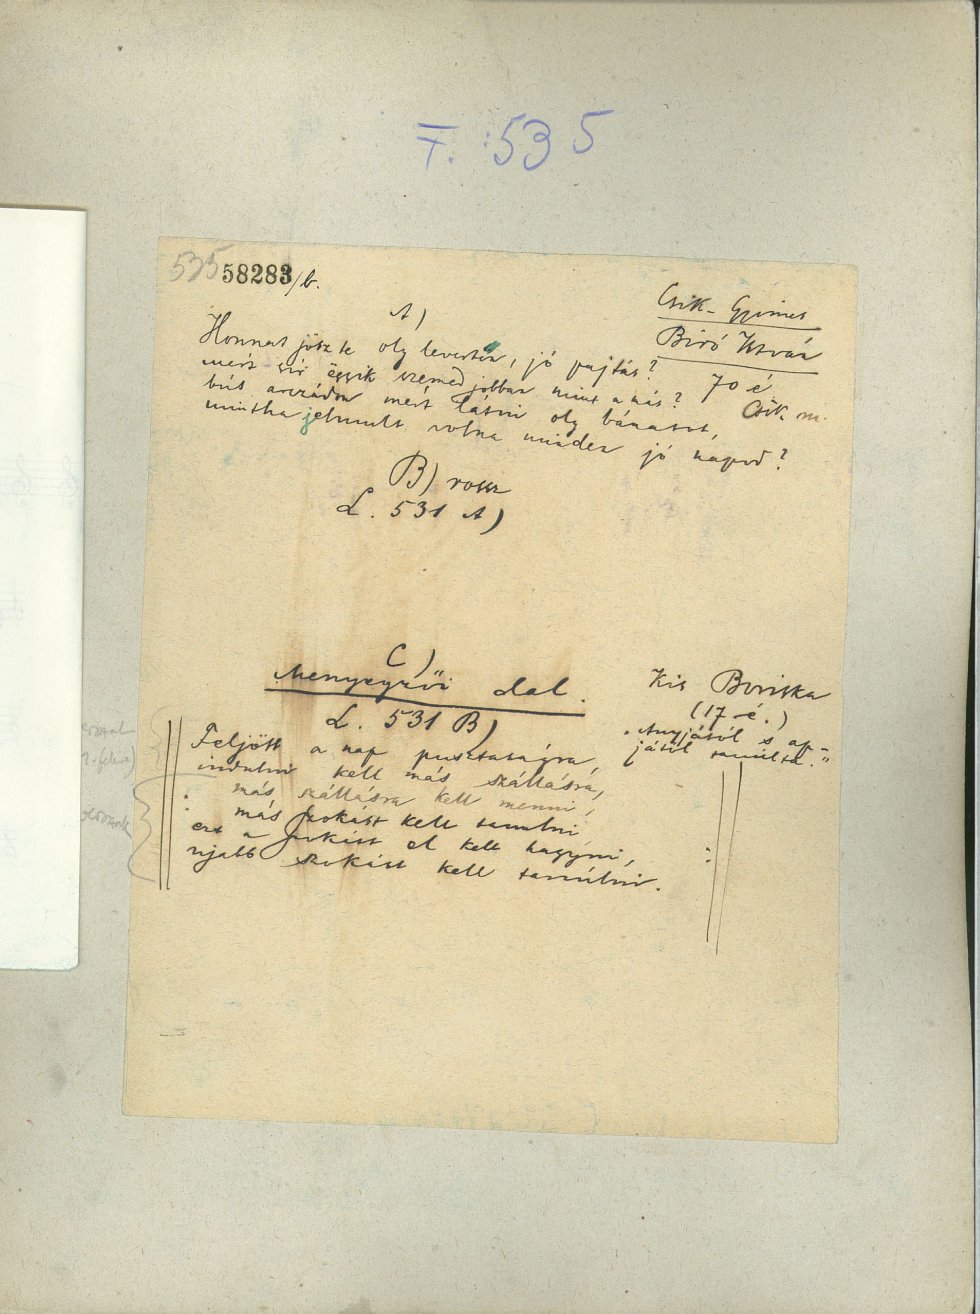 F. 535
535 58283/b.
Csik-Gyimes
Biró István
70 é
Csik m.
A)
Honnat jösz te oly levertön, jó pajtás?
mért sir ëggyik szemed jobban mint a más?
bút arczádon mért látni oly bánatot,
mintha jelmult volna minden jó napod?
B) rossz
L. 531 A)
C)
Menyegzői dal.
L. 531 B)
Kis Boriska
(17 é.)
„Anyjától s ap-
jától tanúlta."
Feljött a nap pusztaságra,
indulni kell más szállásra,
más szállásra kell menni,
más szokást kell tanulni
ezt a szokást el kell hagyni,
ujabb szokást kell tanúlni.